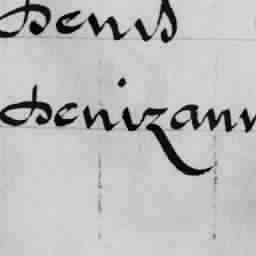 Denis
Denizann